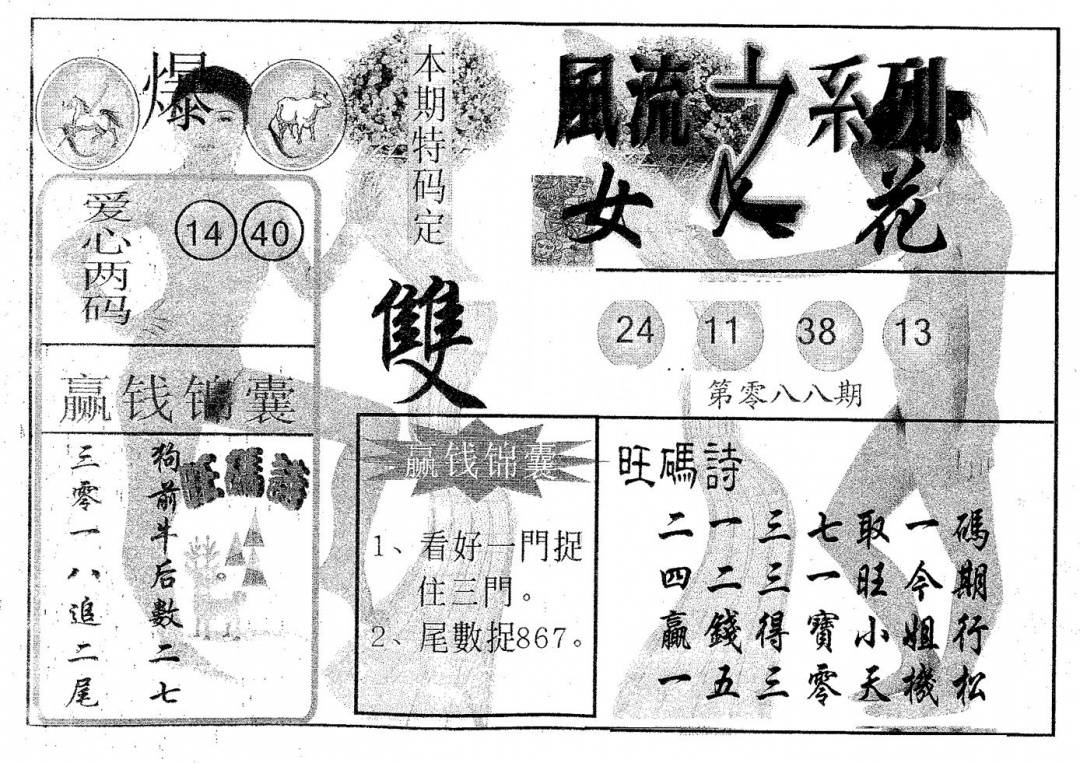 爆
爱心两码
14 40
赢钱锦囊
狗前牛后數二七
三零一八追二尾
旺碼詩
本期特码定
雙
赢钱锦囊
1、看好一門捉
住三門。
2、尾數捉867。
風流之系列
女人花
24 11 38 13
第零八八期
旺碼詩
二一三七取一碼
四二三一旺今期
贏錢得寶小姐行
一五三零天機松